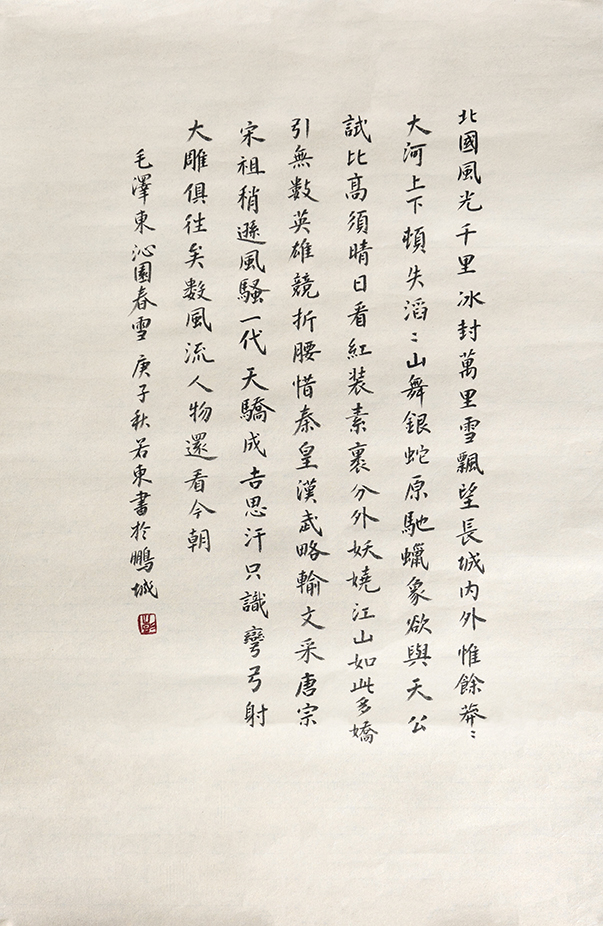 北國風光千里冰封萬里雪飄望長城内外惟餘莽〻
大河上下頓失滔〻山舞銀蛇原馳蠟象欲與天公
試比高須晴日看紅装素裹分外妖嬈江山如此多嬌
引無数英雄競折腰惜秦皇漢武略輸文采唐宗
宋祖稍遜風騷一代天驕成吉思汗只識彎弓射
大雕俱往矣数風流人物還看今朝
毛澤東沁園春雪庚子秋若東書於鵬城